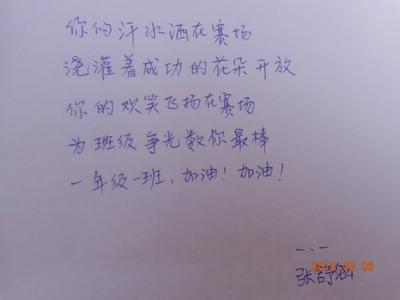 你的汗水洒在赛场
浇灌着成功的花朵开放
你的欢笑飞扬在赛场
为班级争光数你最棒
一年级一班，加油！加油！
一.一
张舒涵